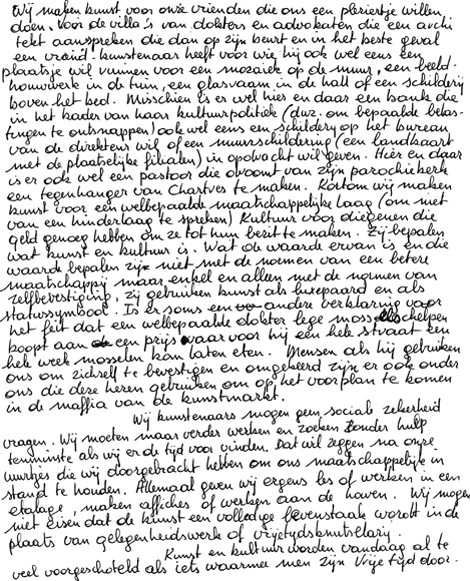 Wij maken kunst voor onze vrienden die ons een plezietje willen
doen. Voor de villa's van dokters en advokaten die een archi
tekt aanspreken die dan op zijn beurt en in het beste geval
een vriend-kunstenaar heeft voor wie hij ook wel eens een
plaatsje wil ruimen voor een mozaiek op de muur, een beeld-
houwwerk in de tuin, een glasraam in de hall of een schilderij
boven het bed. Misschien is er wel hier en daar een bank die
in het kader van haar kultuurpolitiek (dwz. om bepaalde belas-
tingen te ontsnappen) ook wel eens een schilderij op het bureau
van de direkteur wil of een muurschildering (een landkaart
met de plaatselijke filialen) in opdracht wil geven. Hier en daar
is er ook wel een pastoor die droomt van zijn parochiekerk
een tegenhanger van Chartres te maken. Kortom wij maken
kunst voor een welbepaalde maatschappelijke laag (om niet
van een hinderlaag te spreken) Kultuur voor diegenen die
geld genoeg hebben om ze tot hun bezit te maken. Zij bepalen
wat kunst en kultuur is. Wat de waarde ervan is en die
waarde bepalen zijn niet met de normen van een betere
maatschappij maar enkel en alleen met de normen van
zelfbevestiging, zij gebruiken kunst als luxepaard en als
statussymbool. Is er soms een andere verklaring voor
het feit dat een welbepaalde dokter lege mosselschelpen
koopt aan een prijs waarvoor hij een hele straat een
hele week mosselen kan laten eten. Mensen als hij gebruiken
ons om zichzelf te bevestigen en omgekeerd zijn er ook onder
ons die deze heren gebruiken om op het voorplan te komen
in de maffia van de kunstmarkt.
Wij kunstenaars mogen geen sociale zekerheid
vragen. Wij moeten maar verder werken en zoeken zonder hulp
tenminste als wij er de tijd voor vinden. Dat wil zeggen na onze
uurtjes die wij doorgebracht hebben om ons maatschappelijk in
stand te houden. Allemaal geven wij ergens les of werken in een
etalage, maken affiches of werken aan de haven. Wij mogen
niet eisen dat de kunst een volledige levenstaak wordt in de
plaats van gelegenheidswerk of vrijetijdsknutselarij.
Kunst en kultuur worden vandaag al te
veel voorgeschoteld als iets waarmee men zijn vrije tijd door-